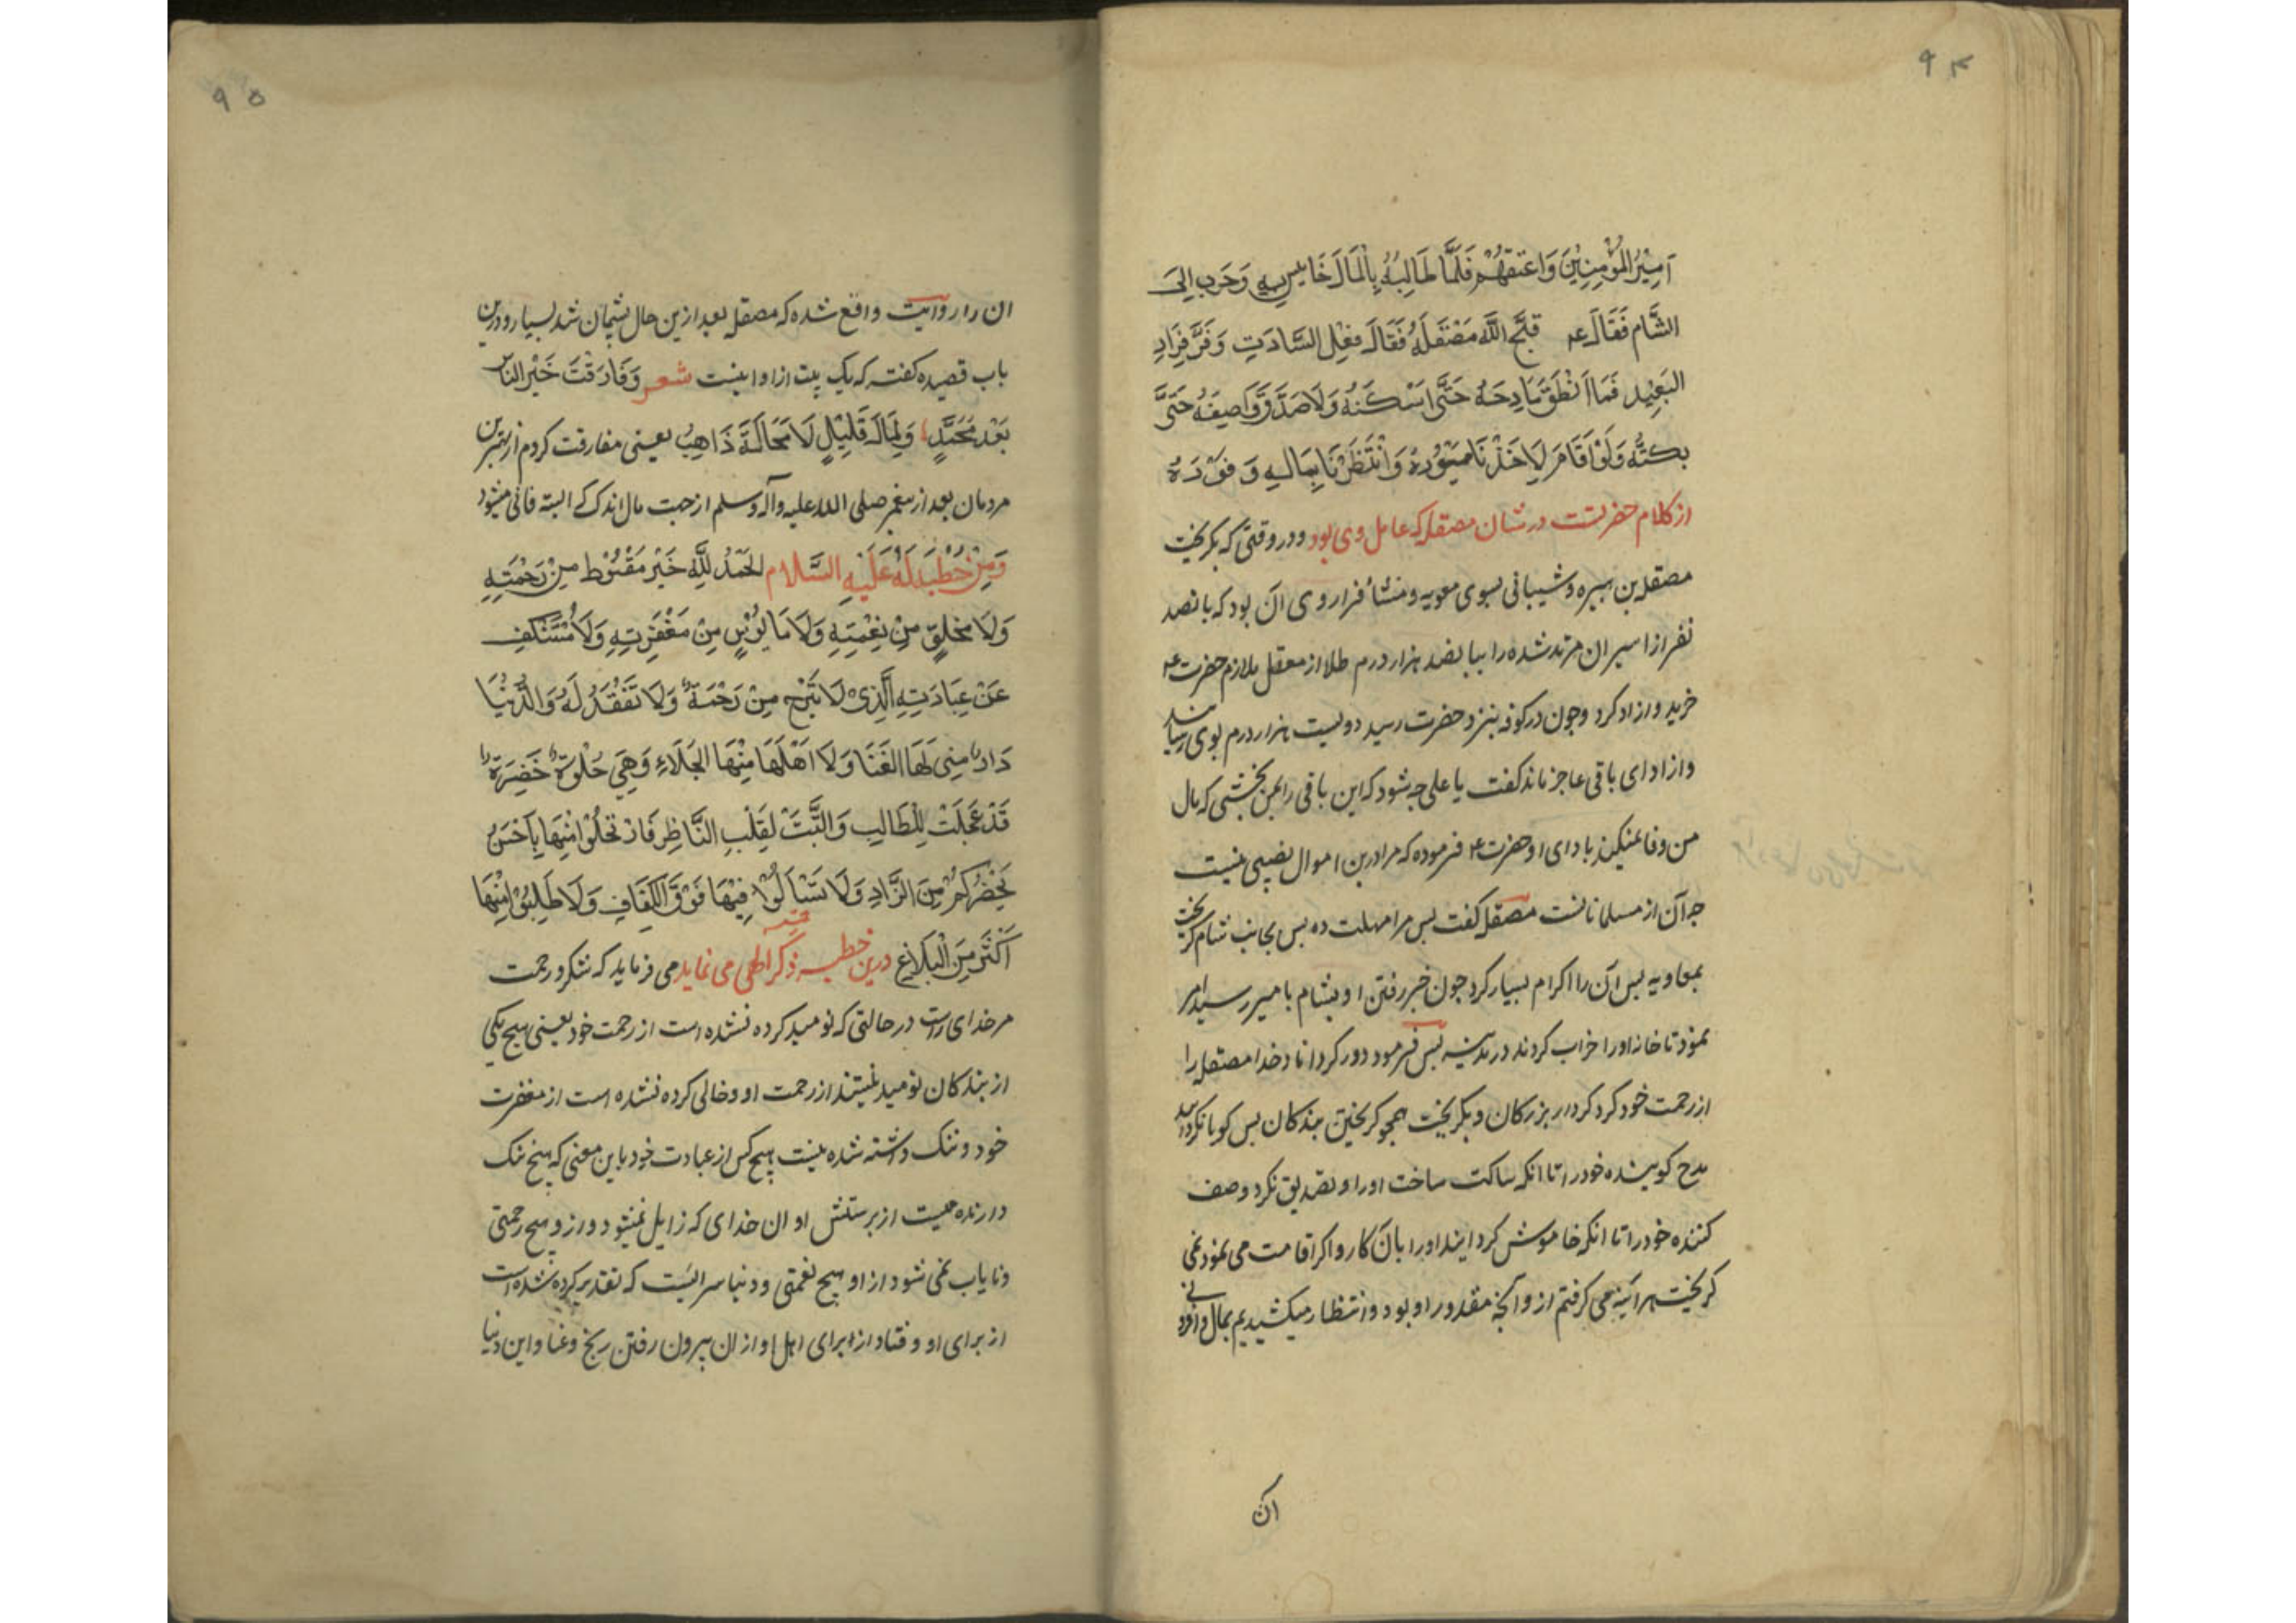 ۹۴
اَمِیْرُ الْمُؤْمِنِیْنَ وَاعْتَقَهُمْ فَلَمَّا طَالَبَهُ بِالْمَالِ خَاسَ بِهِ وَهَرَبَ اِلَی
الشَّامِ فَقَالَ ع قَبَّحَ اللّٰهُ مَصْقَلَةُ فَقَالَ فِعْلَ السَّادَتِ وَفَرَّ فِرَارَ
البَعِیْدِ فَمَا اَنْطَقَ مَادِحَهُ حَتَّی اَسْکَتَهُ وَلَا صَدَّقَ وَاصِفَهُ حَتَّی
بَکَتَهُ وَلَوْ اَقَامَ لَاَخَذْنَا مَیْسُوْرَهُ وَانْتَظَرْنَا بِمَالِهِ وَفُوْرَهُ
از کلام حضرتست در شان مصقله که عامل وی بود ودر وقتی که بکریخت
مصقله بن هبیره وشیبانی بسوی معویه و منشأ فرار وی ان بود که پانصد
نفر از اسیران مرتد شده را بپانصد هزار درم طلا از معقل ملازم حضرت ع
خرید و ازاد کرد وچون در کوفه بنزد حضرت رسید دویست هزار درم بوی رسانید
و از ادای باقی عاجز ماند کفت یا علی چه شود که این باقی را بمن بخشی که مال
من وفا نمیکند بادای او حضرت ع فرموده که مرا درین اموال نصیبی نیست
چه آن از مسلمانانست مصقله کفت پس مرا مهلت ده پس بجانب شام کریخت
بمعاویه پس آن را اکرام بسیار کرد چون خبر رفتن او بشام بامیر رسید امر
نمود تا خانه اورا خراب کردند در مدینه پس فرمود دور کرداناد خدا مصقله را
از رحمت خود کرد کردار بزرکان و بکریخت همچو کریختن بندکان پس کویا نکردانید
مدح کوینده خود را تا انکه ساکت ساخت اورا و تصدیق نکرد وصف
کننده خود را تا انکه خاموش کردانید اورا بان کار و اکر اقامت می نمود نمی
کریخت هر آینه می کرفتم از و آنچه مقدور او بود و انتظار میکشیدیم بمال و افزونی
ان
۹۵
ان را روایت واقع شده که مصقله بعد ازین حال پشیمان شد بسیار و درین
باب قصیده کفته که یک بیت از او اینست شعر وَفَارَقْتَ خَیْرَ النَّاسِ
بَعْدَ مُحَمَّدٍ وَلِمَالِ قَلِیْلٍ لَا مَحَالَةَ ذَاهِبُ یعنی مفارقت کردم از بهترین
مردمان بعد از پیغمبر صلی الله علیه وآله وسلم از جهت مال اندک که البته فانی میشود
وَمِنْ خُطْبَةٍ لَهُ عَلَیْهِ السَّلَام اَلْحَمْدُ لِلّٰهِ خَیْرَ مَقْنُوْطٍ مِنْ رَحْمَتِهِ
وَلَا مَخْلُوٍّ مِنْ نِعْمَتِهِ وَلَا مَایُوْسٍ مِنْ مَغْفِرَتِهِ وَلَا مُسْتَنْکِفٍ
عَنْ عِبَادَتِهِ الَّذِیْ لَا تَبْرَحُ مِنْ رَحْمَةٌ وَلَا تَفْقَدُ لَهُ وَالدُّنْیَا
دَارٌ مُنِیَ لَهَا الْفَنَا وَلَا اَهْلَهَا مِنْهَا الْجَلَاءِ وَهِیَ حُلْوَةٌ خَضِرَةٌ
قَدْ عَجِلَتْ لِلطَّالِبِ وَالْتَبَّتَ لِقَلْبِ النَّاظِرِ فَارْتَحِلُوْا مِنْهَا بِاَحْسَنِ
بِحَضْرَتِکُمْ مِنَ الزَّادِ وَلَا تَسْاَلُوْا فِیْهَا فَوْقَ الْکَفَافِ وَلَا طَلِبُوْا مِنْهَا
اَکْثَرَ مِنَ الْبَلَاغِ درین خطبه ذکر الهی می نماید می فرماید که شکر و رحمت
مر خدای راست در حالتی که نومید کرده نشده است از رحمت خود یعنی هیچ یکی
از بندکان نومید نیستند از رحمت او وخالی کرده نشده است از مغفرت
خود و ننک داشته شده نیست هیچ کس از عبادت خود باین معنی که هیچ ننک
دارنده نیست از پرستش او ان خدای که زایل نمیشود و از و هیچ رحمتی
ونایاب نمی شود از او هیچ نعمتی و دنیا سرائیست که تقدیر کرده شده است
از برای او و فتاد از برای اهل او از ان بیرون رفتن برنج وعنا و این دنیا